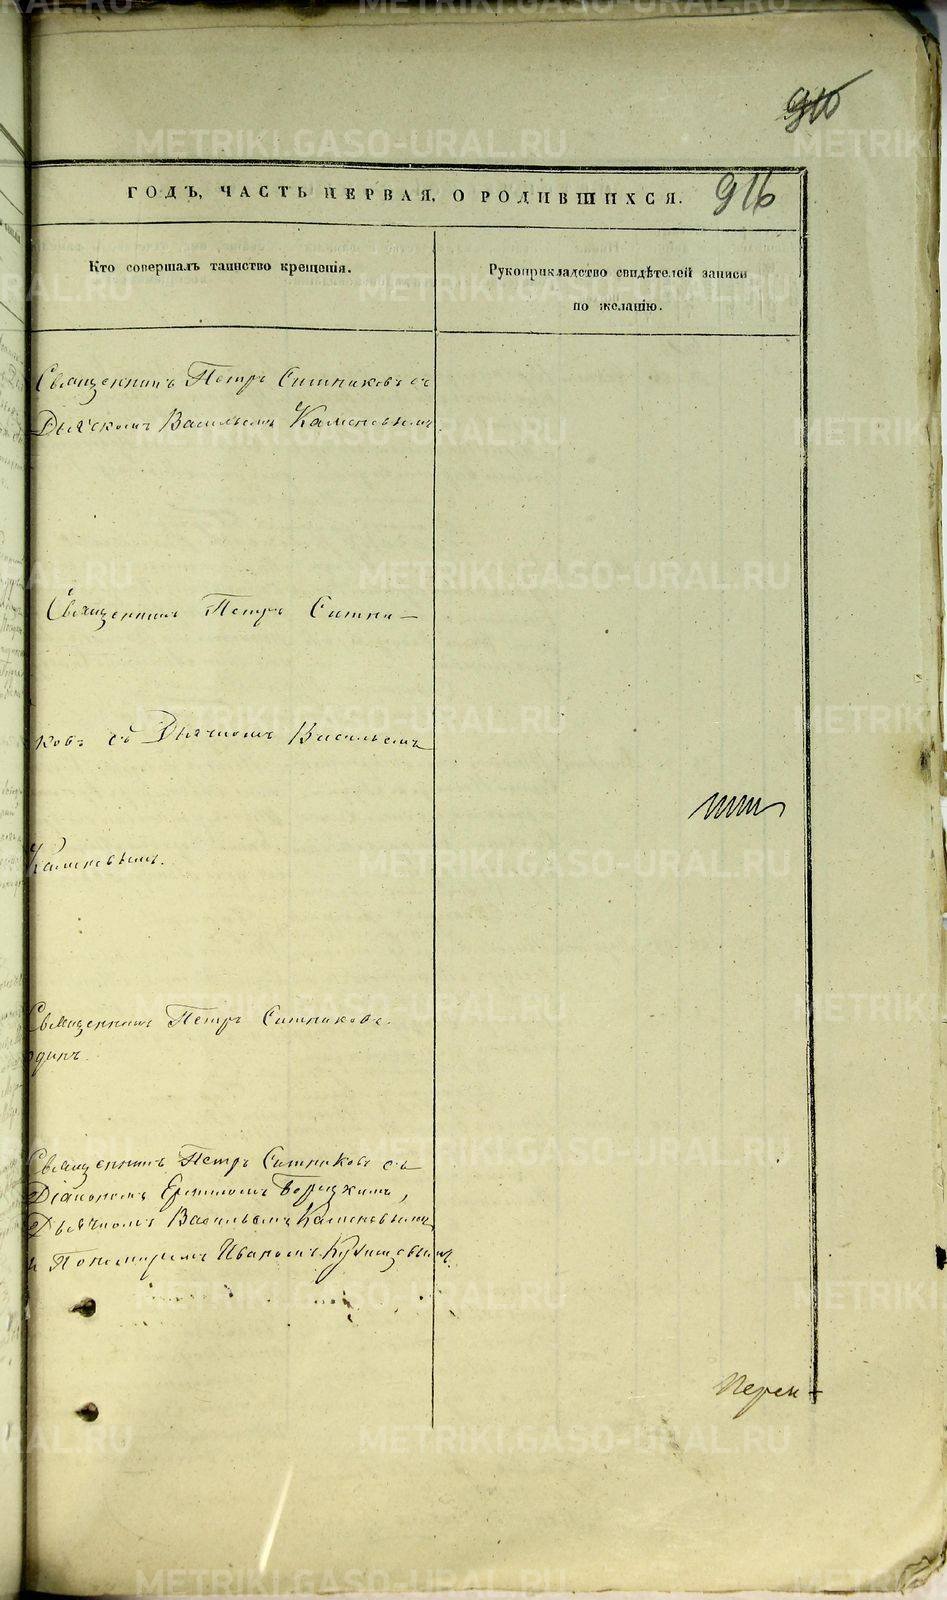 910
ГОДЪ, ЧАСТЬ ПЕРВАЯ, О РОДИВШИХСЯ. 916
Кто совершалъ таинство крещенія.
Рукоприкладство свидѣтелей записи
по желанію.
Священникъ Петръ Ситниковъ съ
Дьячкомъ Васильемъ Каменевымъ
Священникъ Петръ Ситни-
ковъ съ Дьячкомъ Васильемъ
Каменевымъ.
Священникъ Петръ Ситниковъ.
одинъ.
Священникъ Петръ Ситниковъ съ
Діакономъ
Дьячкомъ Васильемъ Каменевымъ
и Пономаремъ Иваномъ
METRIKI.GASO-URAL.RU